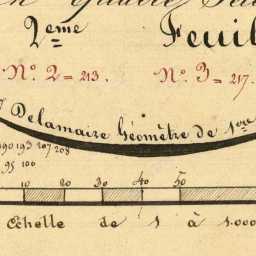 2eme Feuil
Nº. 2=213. Nº. 3=217.
Delamaire Géomètre de 1ere
190 193 207 208
95 100
10 20 30 40 50
Echelle de 1 à 1.000